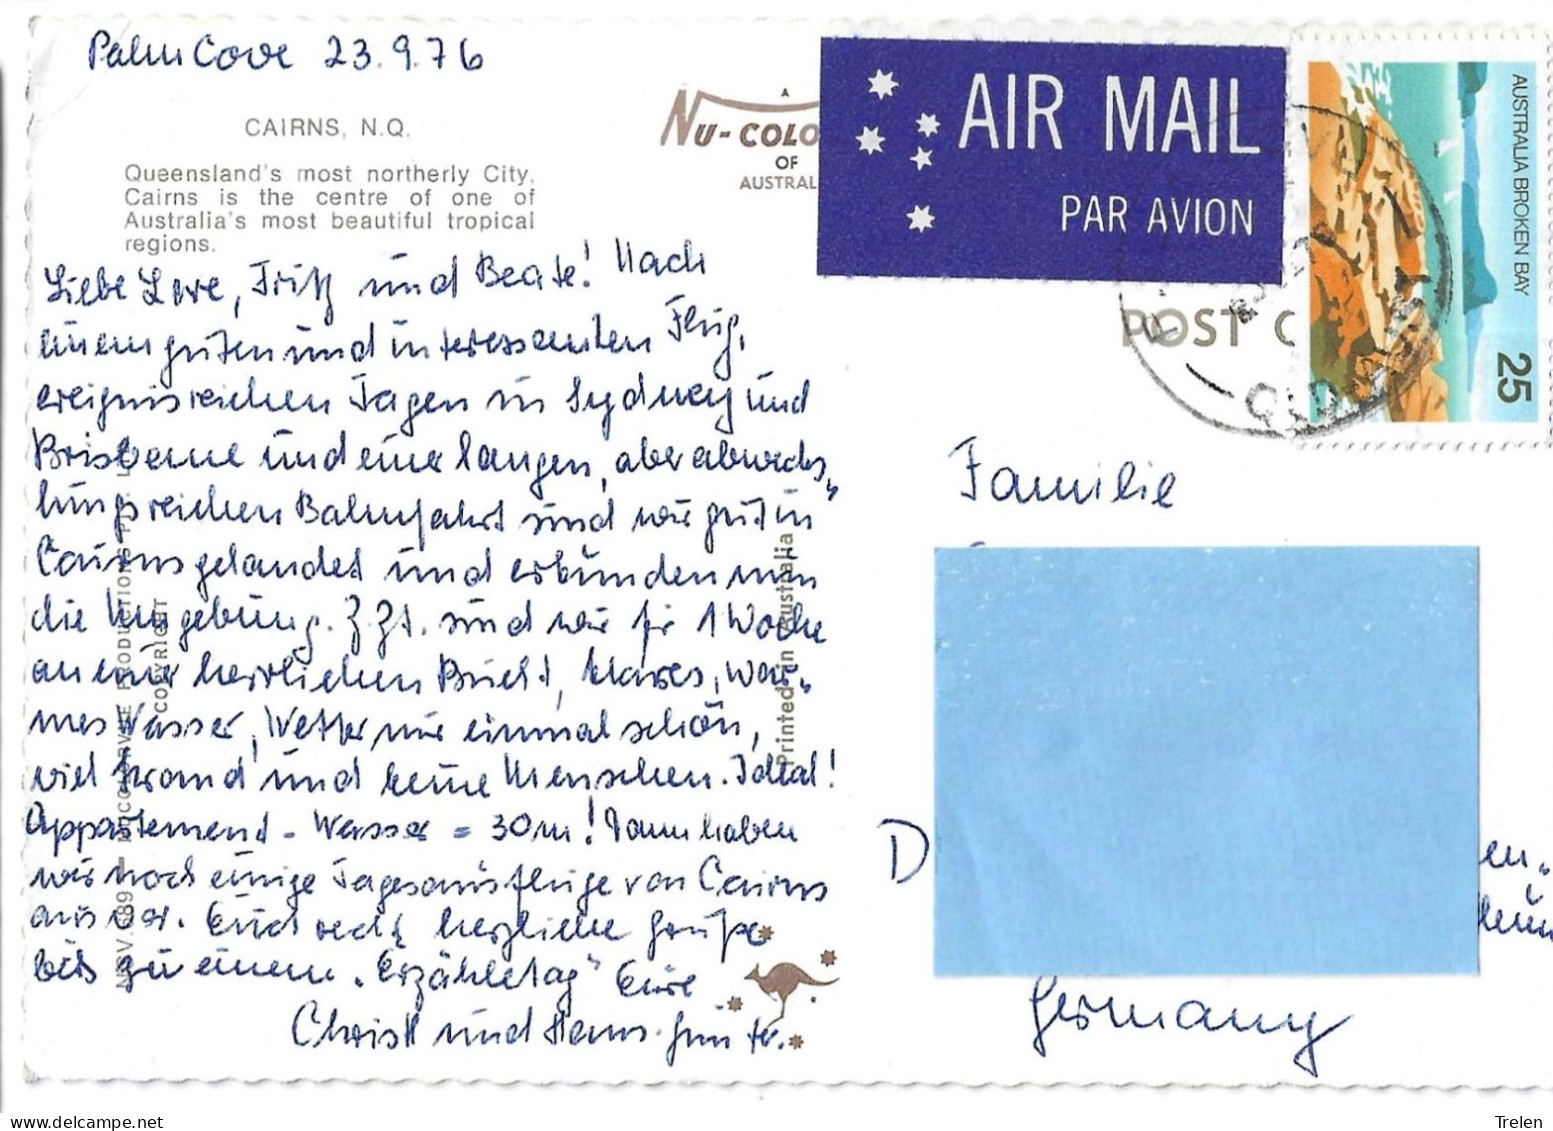 Palm Cove 23.9.76
CAIRNS, N.Q.
Queensland's most northerly City,
Cairns is the centre of one of
Australia's most beautiful tropical
regions.
A
NU-COLO
OF
AUSTRAL
AIR MAIL
PAR AVION
AUSTRALIA BROKEN BAY
25
POST C
QLD-AUST
Liebe Lore, Fritz und Beate! Nach
einem guten und interessanten Flug,
ereignisreichen Tagen in Sydney und
Brisbane und einer langen, aber abwechs„
lungsreichen Bahnfahrt sind wir gut in
Cairns gelandet und erkunden nun
die Umgebung. Z.Zt. sind wir für 1 Woche
an einer herrlichen Bucht, klares, war„
mes Wasser, Wetter nur einmal schön,
viel Strand und keine Menschen. Ideal!
Appartement - Wasser = 30m! Dann haben
wir noch einige Tagesausflüge von Cairns
aus vor. Euch recht herzliche Grüße
bis zu einem „Erzähletag" Eure
Christl und Hans-Günter.
COPYRIGHT
Printed in Australia
Familie
D
en„
Germany
www.delcampe.net
Trelen